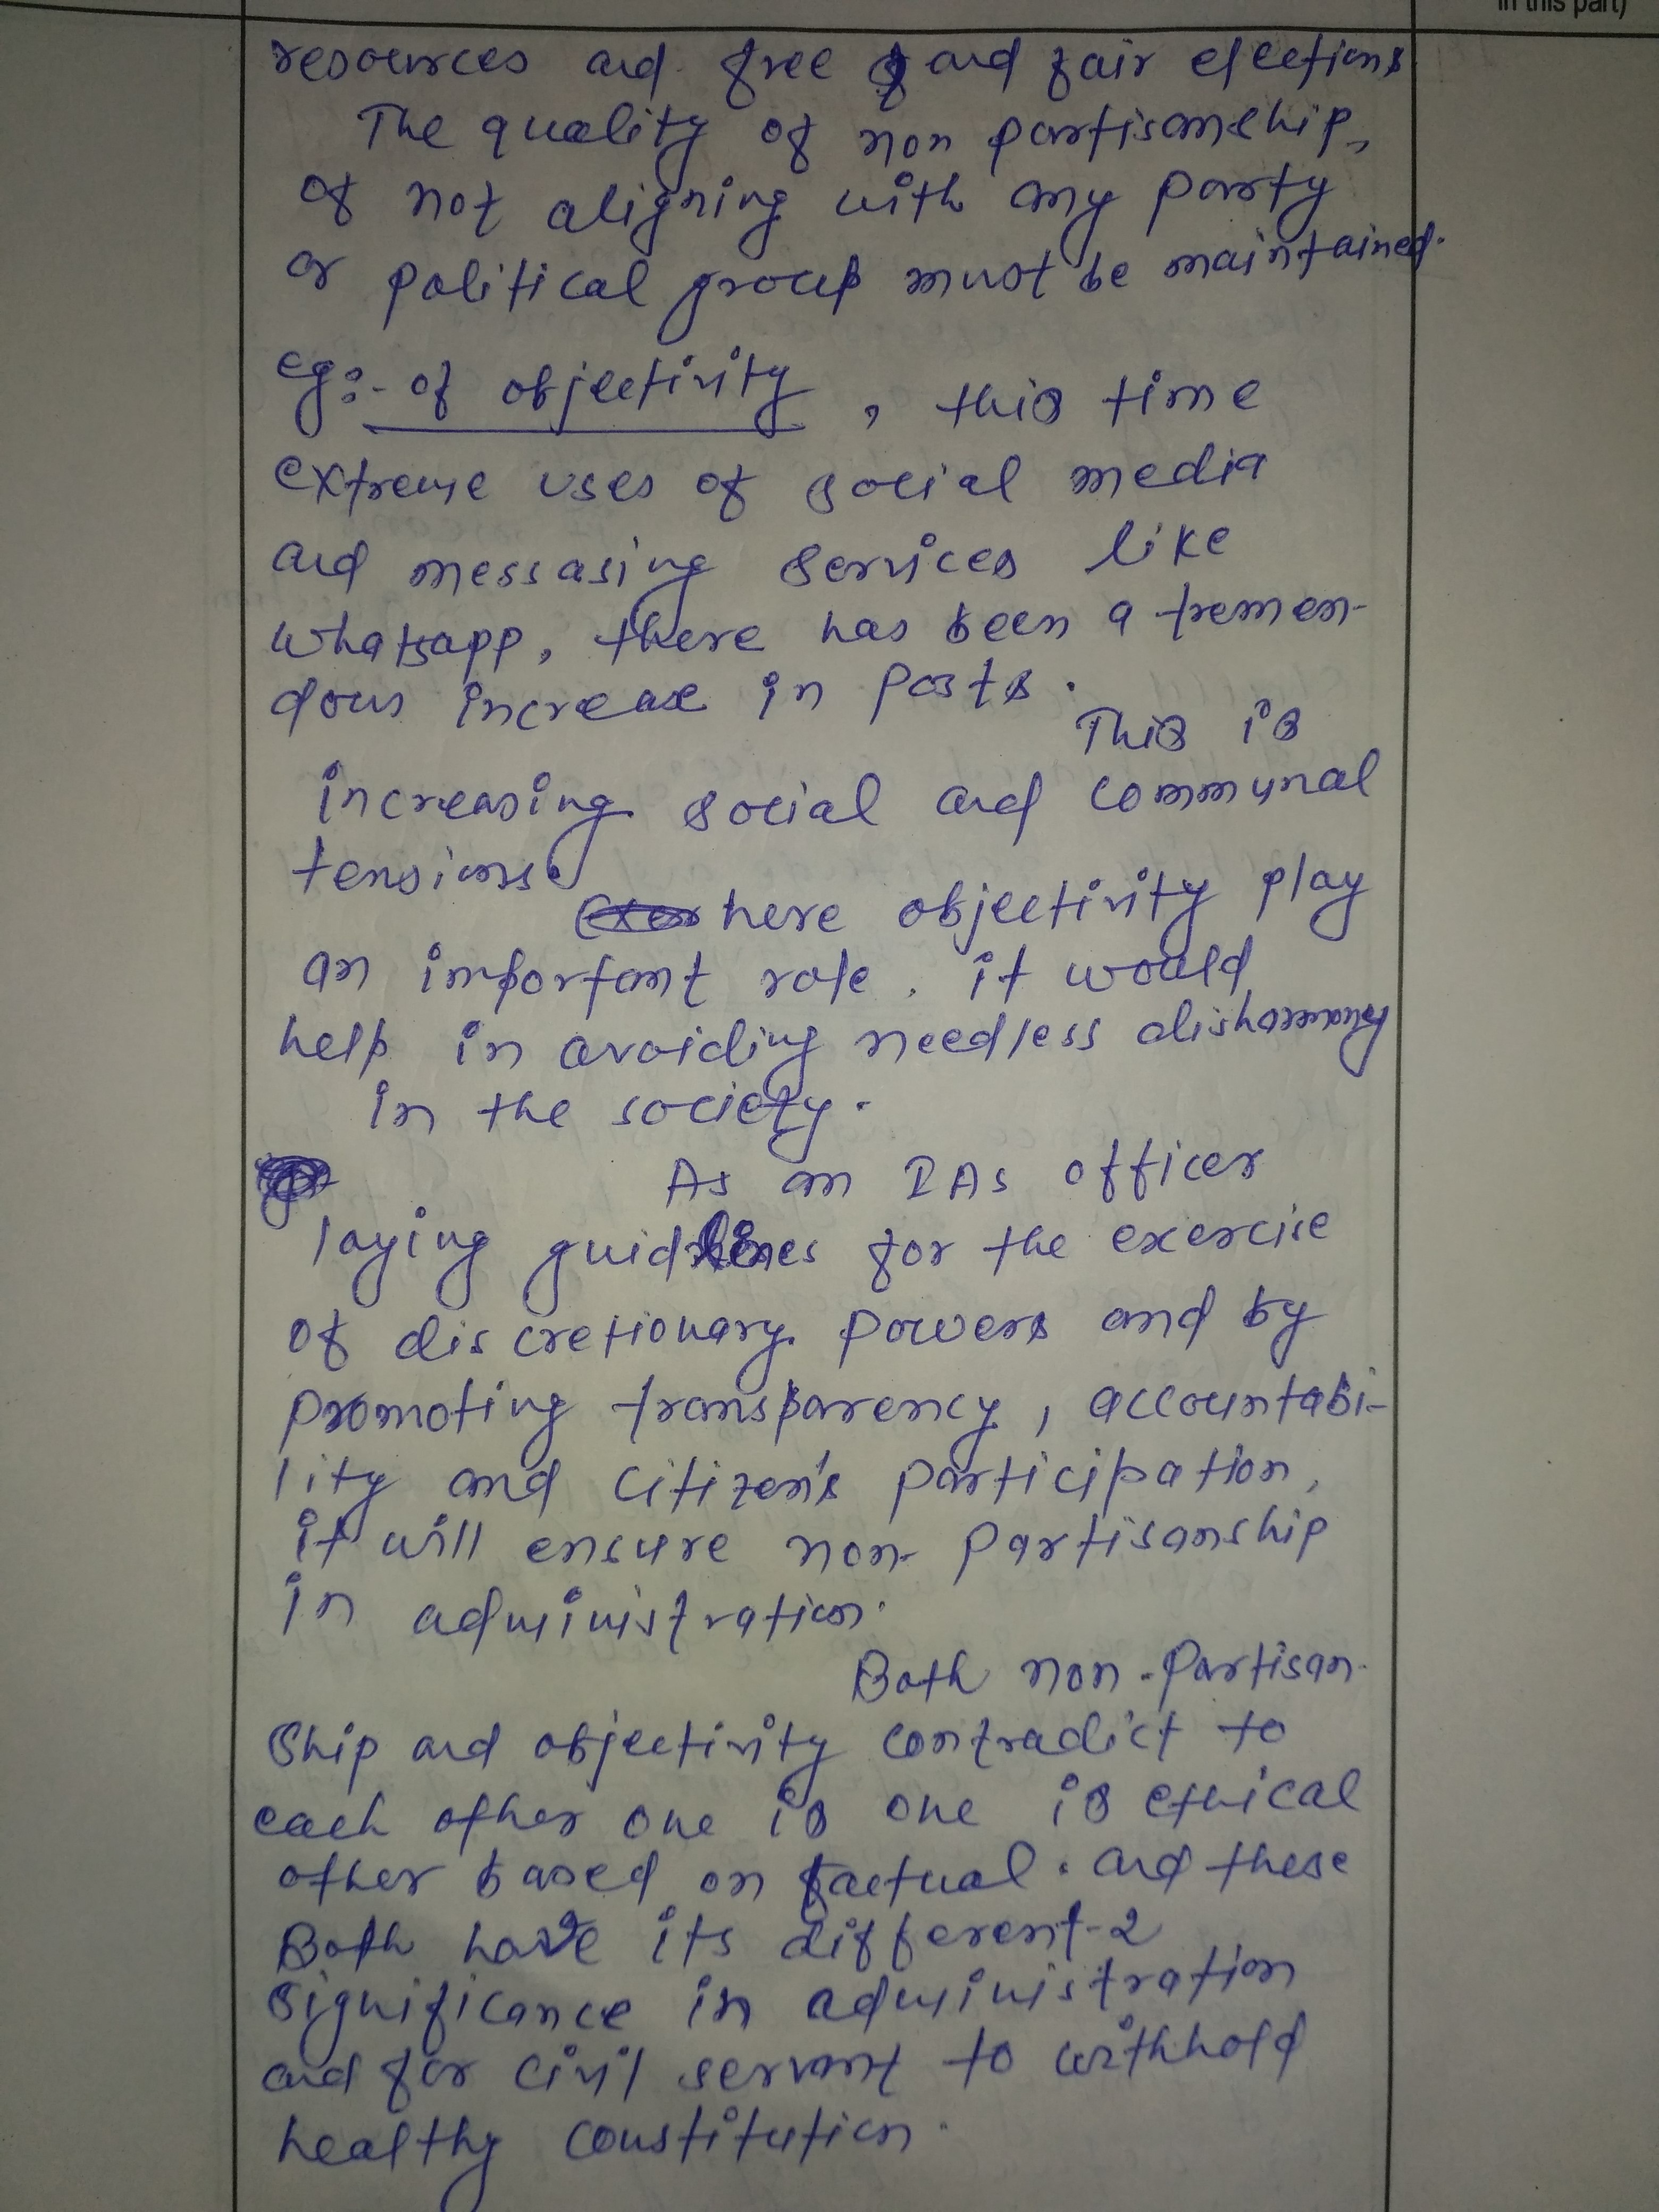 in this part)
resources and free and fair elections
The quality of non partisanship,
of not aligning with any party
or political group must be maintained.
eg:- of objectivity, this time
extreme uses of social media
and messasing services like
whatsapp, there has been a tremen-
dous increase in posts.
This is
increasing social and communal
tensions.
here objectivity play
an important role. it would
help in avoiding needless disharmony
in the society.
As an IAS officer
laying guidlines for the exercise
of discretionary powers and by
promoting transparency, accountabi-
lity and citizen's participation,
it will ensure non-partisanship
in administration.
Both non-partisan-
ship and objectivity contradict to
each other one is one is ethical
other based on factual. and these
Both have its different-2
significance in administration
and for civil servant to withhold
healthy constitution.